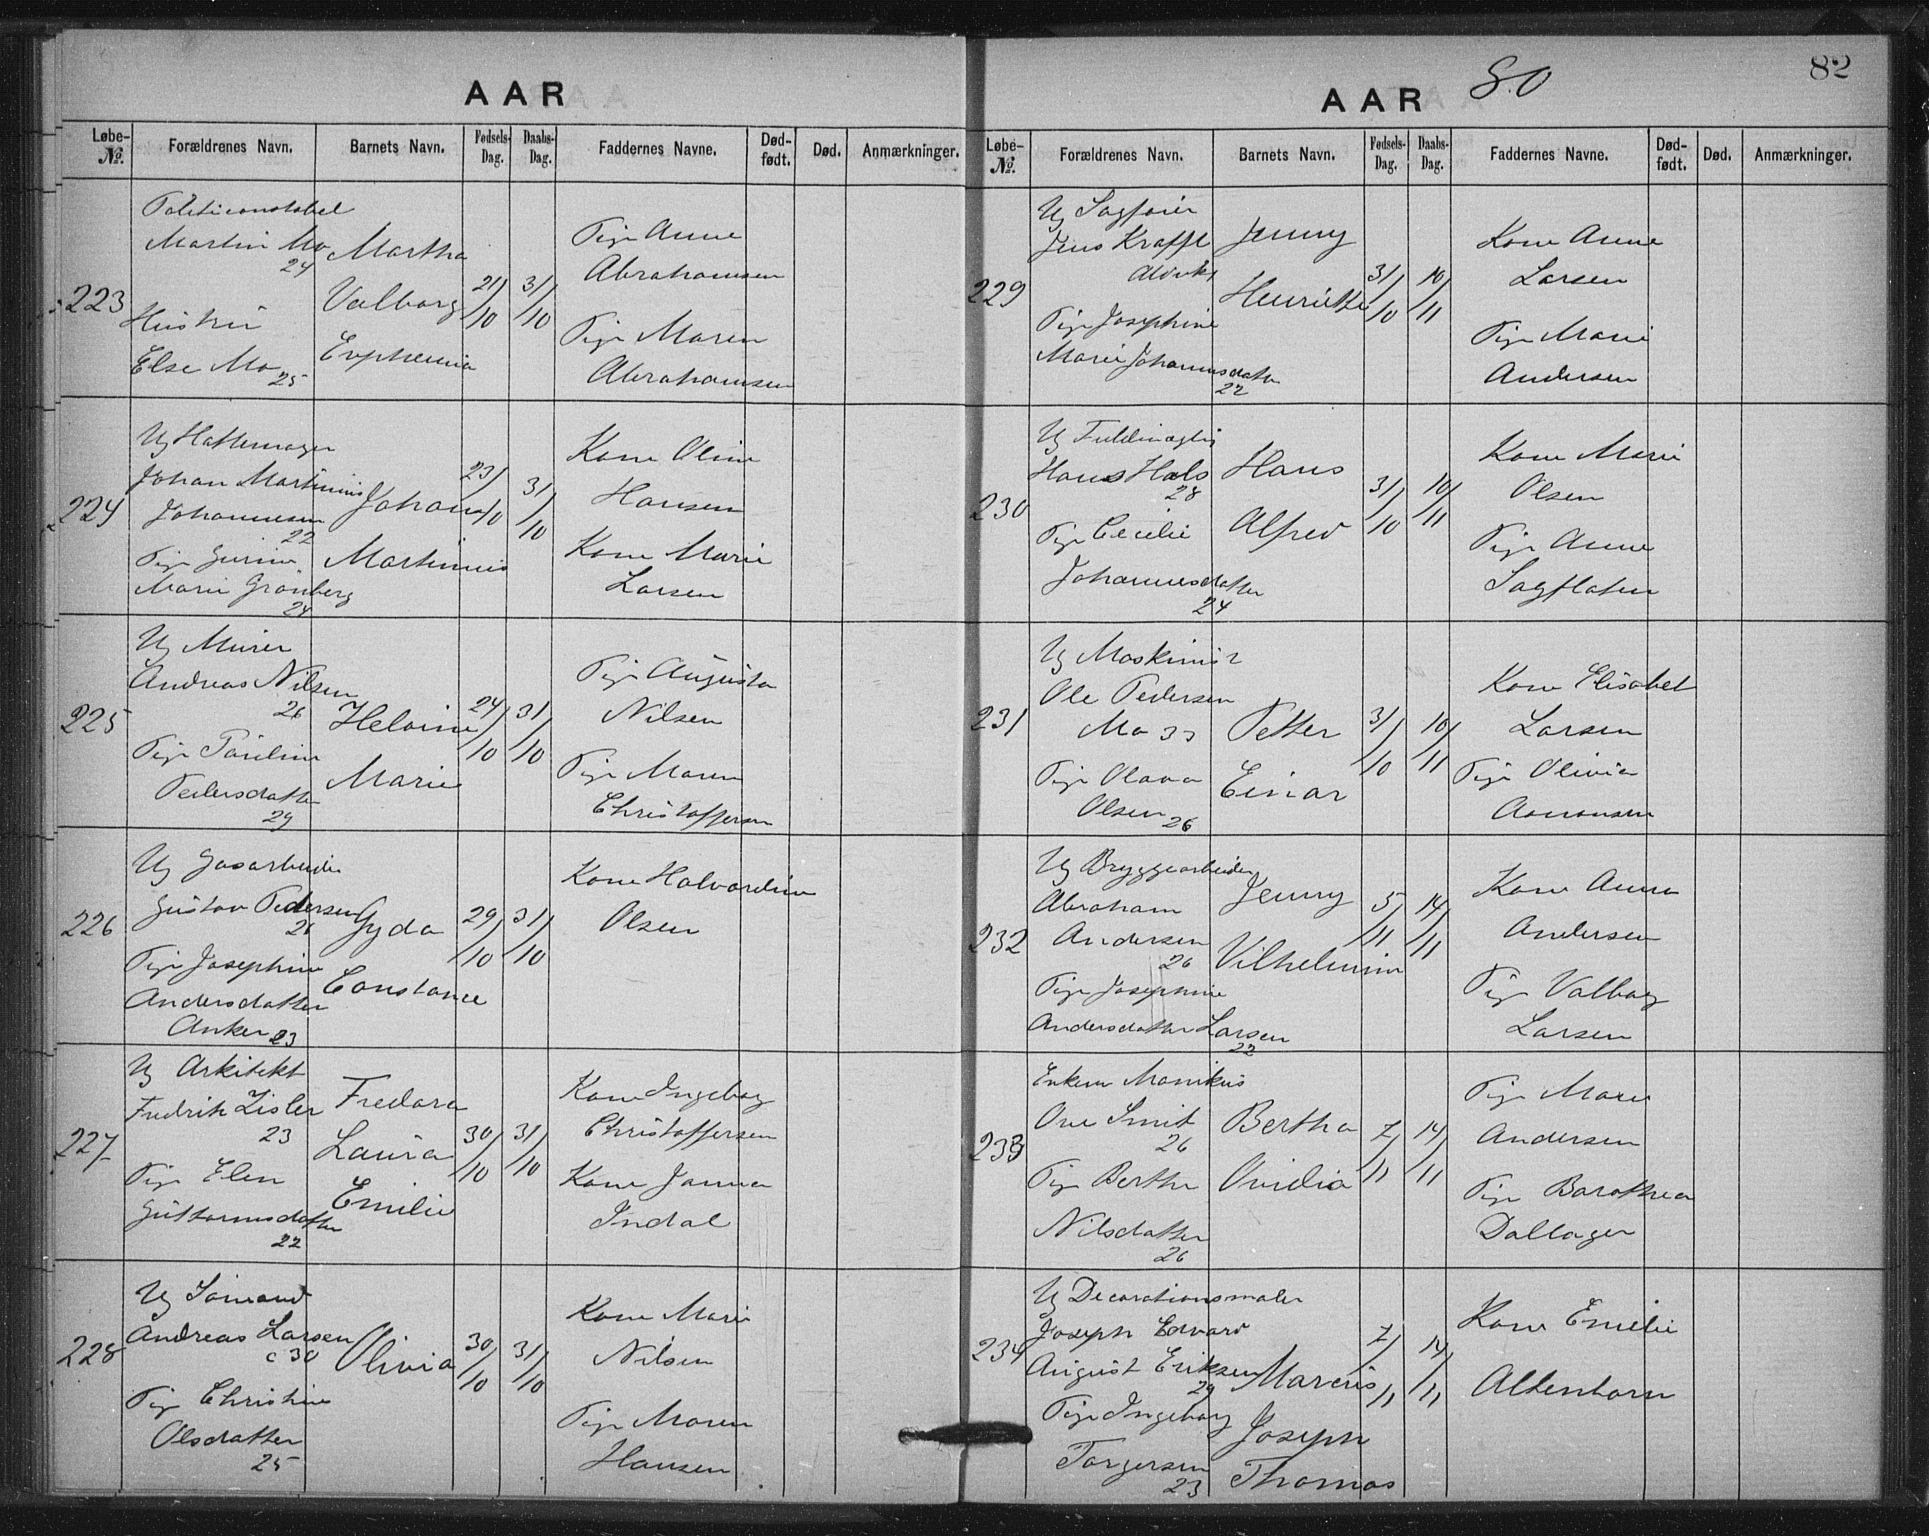 AAR
Løbe-No. Forældrenes Navn. Barnets Navn. Fødsels-Dag. Daabs-Dag. Faddernes Navne. Død-født. Død. Anmærkninger.
223
Politiconstabel
Martin Mo
24
Hustru
Else Mo 25
Martha
Valborg
Evphemia
21/10
31/10
Pige Anne
Abrahamsen
Pige Maren
Abrahamsen
224
Ug Hattemager
Johan Martinius
Johannesen
22
Pige Gurine
Marie Grønberg
24
Johan
Martinius
23/10
31/10
Kone Oline
Hansen
Kone Marie
Larsen
225
Ug Murer
Andreas Nilsen
26
Pige Pauline
Pedersdatter
29
Helvine
Marie
24/10
31/10
Pige Augusta
Nilsen
Pige Maren
Christoffersen
226
Ug Gasarbeider
Gustav Pedersen
21
Pige Josephine
Andersdatter
Anker 23
Gyda
Constance
29/10
31/10
Kone Halvardine
Olsen
227
Ug Arkitekt
Fredrik Zisler
23
Pige Elen
Guttormsdatter
22
Fredara
Laura
Emilie
30/10
31/10
Kone Ingeborg
Christoffersen
Kone Janna
Indal
228
Ug Sømand
Andreas Larsen
c 30
Pige Christine
Olsdatter
25
Olivia
30/10
31/10
Kone Marie
Nilsen
Pige Maren
Hansen
82
AAR 80
Løbe-No. Forældrenes Navn. Barnets Navn. Fødsels-Dag. Daabs-Dag. Faddernes Navne. Død-født. Død. Anmærkninger.
229
Ug Sagfører
Jens Krafft
Pige Josephine
Marie Johannesdatter
22
Jenny
Henriette
31/10
10/11
Kone Anne
Larsen
Pige Marie
Andersen
230
Ug Fuldmægtig
Hans Hals
28
Pige Cecilie
Johannesdatter
24
Hans
Alfred
31/10
10/11
Kone Marie
Olsen
Pige Anne
Sagflaten
231
Ug Maskinist
Ole Pedersen
Mo 33
Pige Olava
Olsen 26
Petter
Einar
31/10
10/11
Kone Elisabet
Larsen
Pige Olivia
Aamonsen
232
Ug Bryggearbeider
Abraham
Andersen
26
Pige Josephine
Andersdatter Larsen
22
Jenny
Vilhelmine
5/11
14/11
Kone Anna
Andersen
Pige Valborg
Larsen
233
Enkem
Ove Smit
26
Pige Berthe
Nilsdatter
26
Bertha
Ovidia
7/11
14/11
Pige Marie
Andersen
Pige Barothea
Dallager
234
Ug Decorationsmaler
Joseph Edvard
August Eriksen
29
Pige Ingeborg
Torgersen
23
Marcus
Joseph
Thomas
7/11
14/11
Kone Emilie
Altenborn